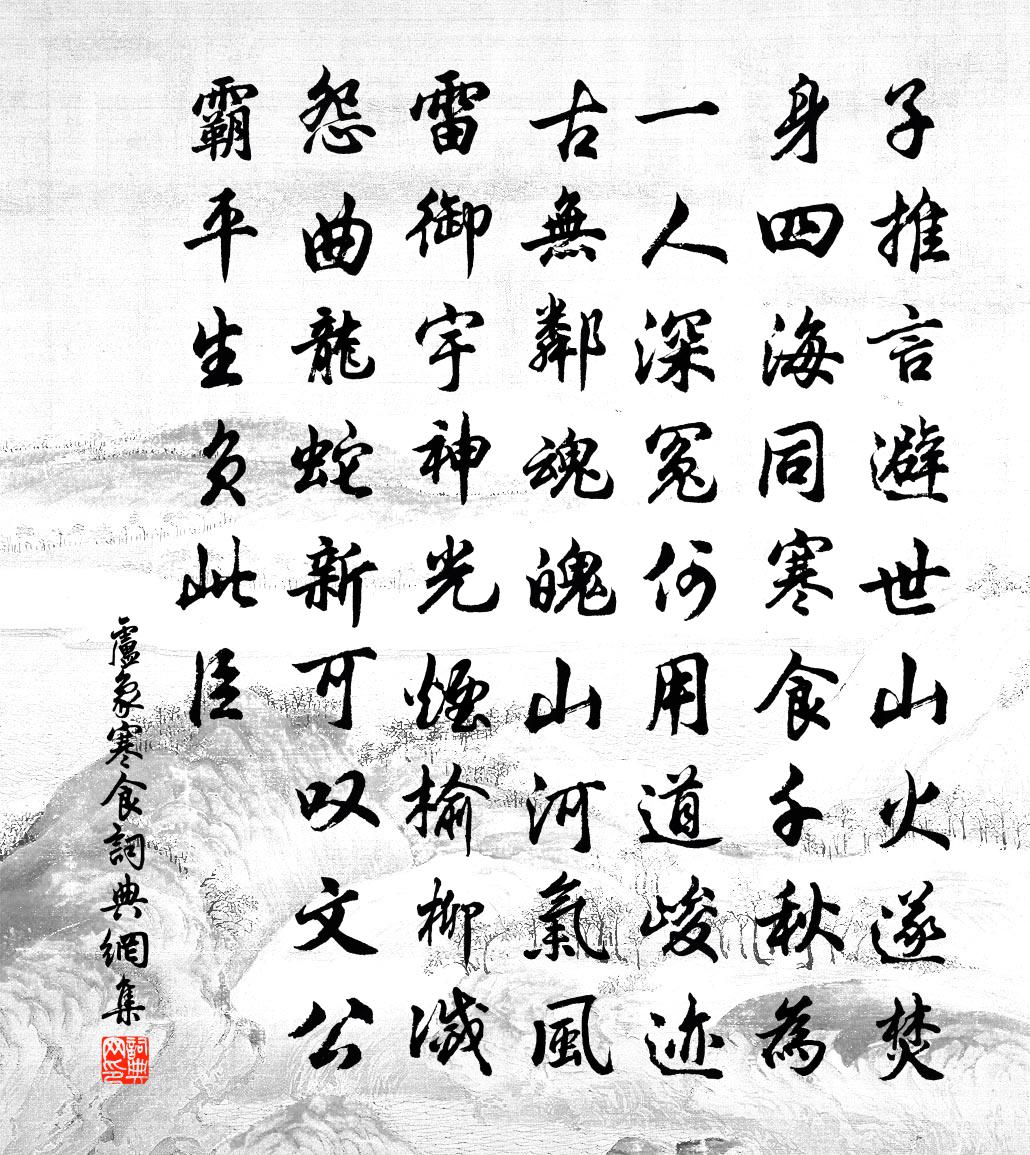 子推言避世山火遂焚
身四海同寒食千秋為
一人深冤何用道峻迹
古無鄰魂魄山河氣風
雷御宇神光煙榆柳滅
怨曲龍蛇新可叹文公
霸平生負此臣
盧象寒食詞典網集
詞典网印